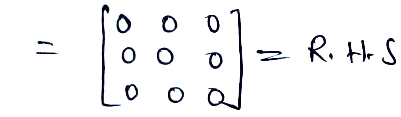 = [0 0 0
0 0 0
0 0 0] = R.H.S